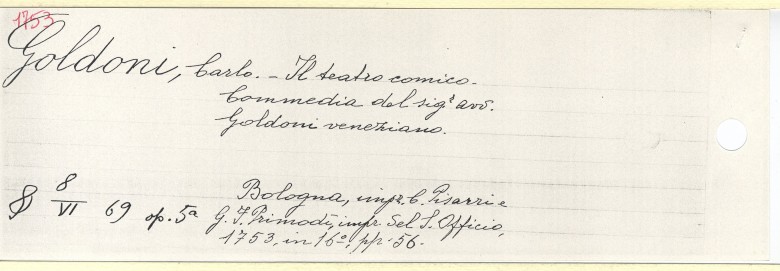 1753
Goldoni, Carlo. - Il teatro comico.
Commedia del sigr avv.
Goldoni veneziano.
Bologna, impr. C. Pisarri e
§ 8/VI 69 op. 5a G. F. Primodì, impr. del S. Officio,
1753, in 16°, pp. 56.